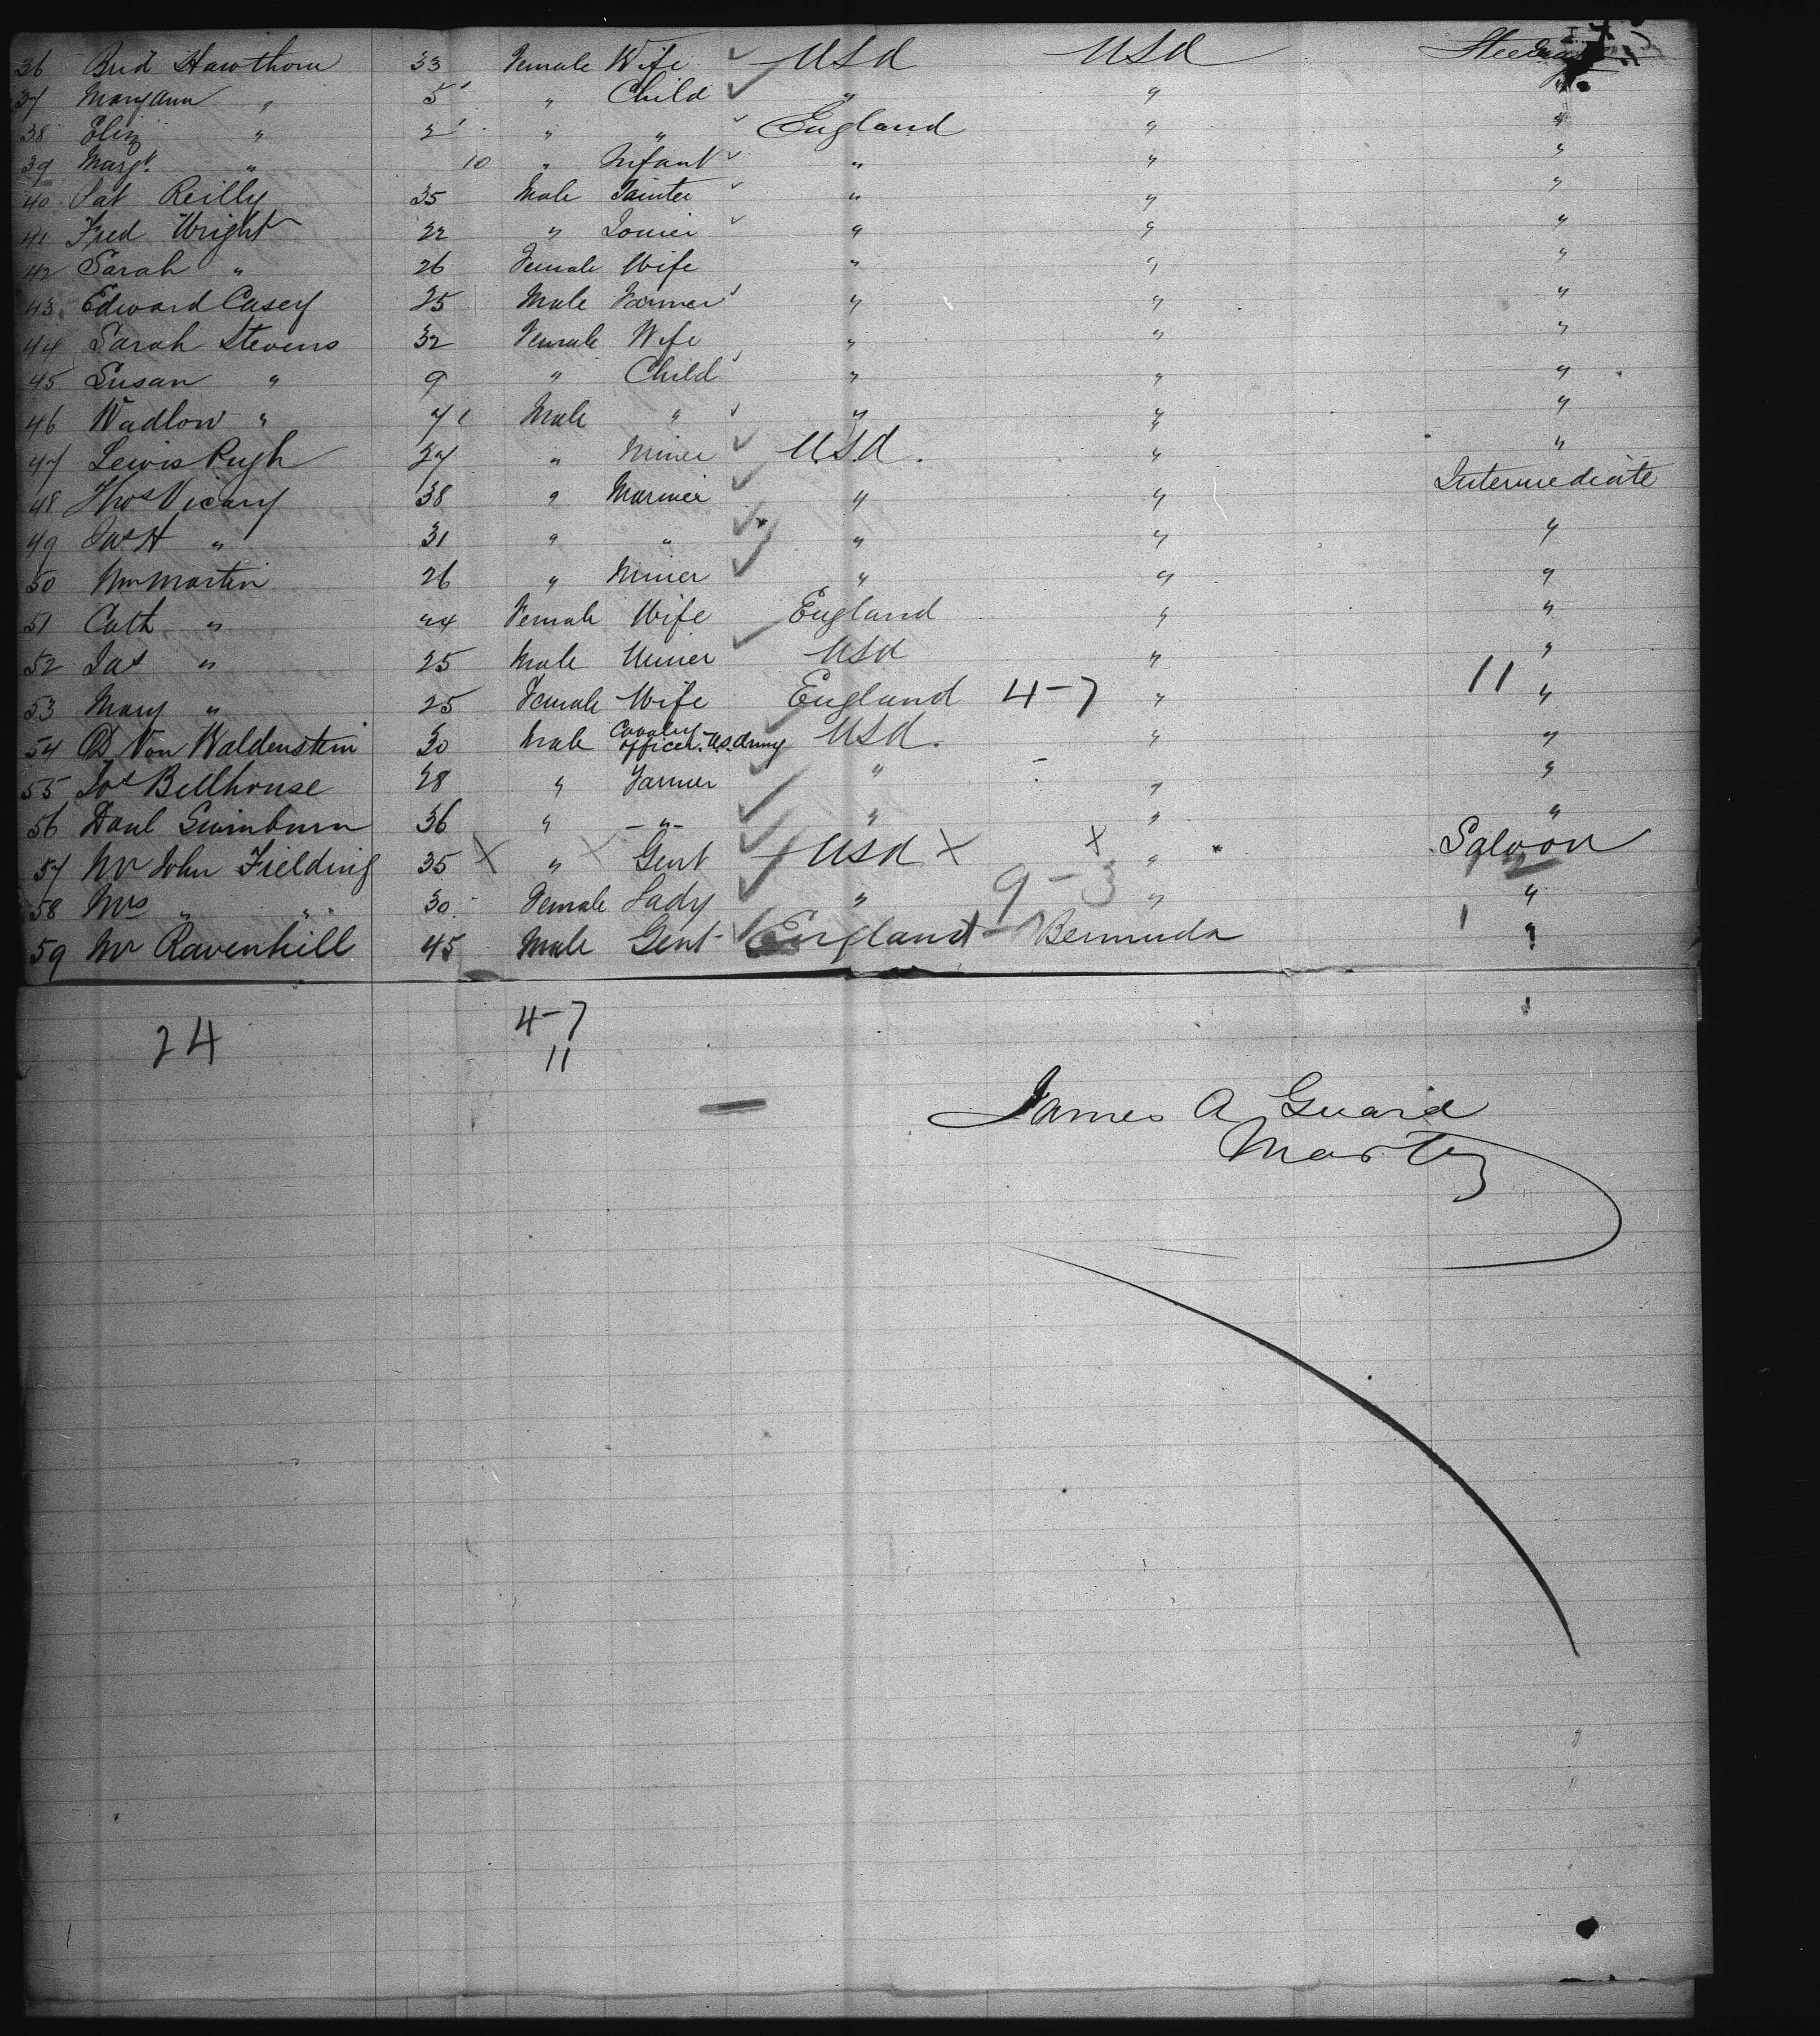 36 Brid Hawthorn 33 Female Wife ✓ USA USA Steerage
37 Maryann " 5 " Child ✓ " " "
38 Eliz " 2 " " ✓ England " "
39 Margt. " 10 " Infant ✓ " " "
40 Pat Reilly 35 Male Painter ✓ " " "
41 Fred Wright 22 " Joiner ✓ " " "
42 Sarah " 26 Female Wife " " "
43 Edward Casey 25 Male Farmer " " "
44 Sarah Stevens 32 Female Wife " " "
45 Susan " 9 " Child " " "
46 Wadlow " 7 Male " ✓ " " "
47 Lewis Pugh 27 " Miner ✓ USA. " "
48 Thos Vicary 38 " Mariner ✓ " " Intermediate
49 Jas H " 31 " " ✓ " " "
50 Wm Martin 26 " Miner ✓ " " "
51 Cath " 24 Female Wife England " "
52 Jas " 25 Male Miner ✓ USA " "
53 Mary " 25 Female Wife England 4-7 " 11 "
54 Von Waldenstein 30 Male Cavalry officer. U.S. Army USA. " "
55 Jos Bellhouse 28 " Farmer ✓ " " "
56 Danl Swinburn 36 " -"- ✓ " " "
57 Mr John Fielding 35 X " X Gent ✓ USA X X " Saloon
58 Mrs " " 30 Female Lady ✓ " 9-3 " "
59 Mr Ravenhill 45 Male Gent ✓ England Bermuda 1 "
24 4-7
11
James A Guard
Master